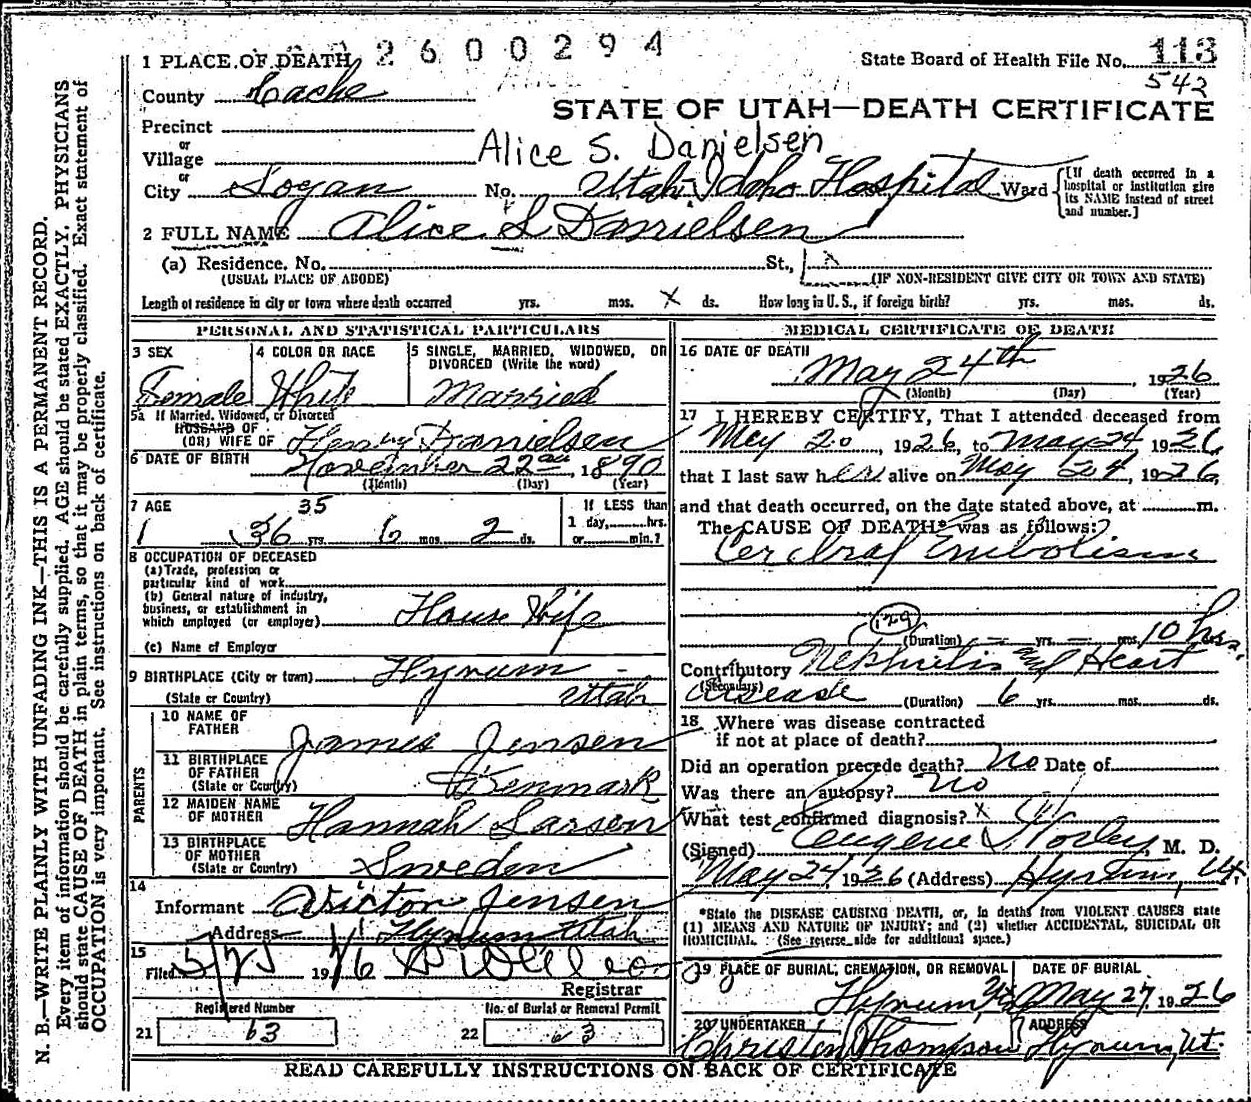 2600294
1 PLACE OF DEATH
State Board of Health File No. 113
542
County Cache
STATE OF UTAH—DEATH CERTIFICATE
Precinct
or
Village
Alice S. Danielsen
or
City Logan No. Utah-Idaho Hospital Ward
[If death occurred in a hospital or institution give its NAME instead of street and number.]
2 FULL NAME Alice S Danielsen
(a) Residence. No. St.,
(USUAL PLACE OF ABODE) (IF NON-RESIDENT GIVE CITY OR TOWN AND STATE)
Length of residence in city or town where death occurred yrs. mos. X ds. How long in U. S., if foreign birth? yrs. mos. ds.
PERSONAL AND STATISTICAL PARTICULARS
3 SEX
Female
4 COLOR OR RACE
White
5 SINGLE, MARRIED, WIDOWED, OR
DIVORCED (Write the word)
Married
5a If Married, Widowed, or Divorced
HUSBAND OF
(OR) WIFE OF Henry Danielsen
6 DATE OF BIRTH November 22nd, 1890
(Month) (Day) (Year)
7 AGE 35
1 36 yrs. 6 mos. 2 ds.
If LESS than
1 day, hrs.
or min.?
8 OCCUPATION OF DECEASED
(a) Trade, profession or
particular kind of work
(b) General nature of industry,
business, or establishment in
which employed (or employer) House Wife
(c) Name of Employer
9 BIRTHPLACE (City or town) Hyrum -
(State or Country) Utah
PARENTS
10 NAME OF
FATHER James Jensen
11 BIRTHPLACE
OF FATHER
(State or Country) Denmark
12 MAIDEN NAME
OF MOTHER Hannah Larsen
13 BIRTHPLACE
OF MOTHER
(State or Country) Sweden
14
Informant Victor Jensen
Address Hyrum Utah
15
Filed 5/25 1926
Registrar
Registered Number
21 63
No. of Burial or Removal Permit
22 63
MEDICAL CERTIFICATE OF DEATH
16 DATE OF DEATH
May 24th, 1926
(Month) (Day) (Year)
17 I HEREBY CERTIFY, That I attended deceased from
May 20, 1926, to May 24 1926,
that I last saw her alive on May 24, 1926,
and that death occurred, on the date stated above, at m.
The CAUSE OF DEATH* was as follows:
Cerebral Embolism
129
(Duration) - yrs. - mos. 10 hrs. ds.
Contributory Nephritis and Heart
(Secondary) disease (Duration) 6 yrs. mos. ds.
18 Where was disease contracted
if not at place of death?
Did an operation precede death? No Date of
Was there an autopsy? No
What test confirmed diagnosis? X
(Signed) Eugene Worley, M. D.
May 24 1926 (Address) Hyrum, Ut.
*State the DISEASE CAUSING DEATH, or, in deaths from VIOLENT CAUSES state
(1) MEANS AND NATURE OF INJURY; and (2) whether ACCIDENTAL, SUICIDAL OR
HOMICIDAL. (See reverse side for additional space.)
19 PLACE OF BURIAL, CREMATION, OR REMOVAL
Hyrum
DATE OF BURIAL
May 27, 1926
20 UNDERTAKER
Christen Thompson
ADDRESS
Hyrum, Ut.
READ CAREFULLY INSTRUCTIONS ON BACK OF CERTIFICATE
N. B.—WRITE PLAINLY WITH UNFADING INK—THIS IS A PERMANENT RECORD.
Every item of information should be carefully supplied. AGE should be stated EXACTLY. PHYSICIANS
should state CAUSE OF DEATH in plain terms, so that it may be properly classified. Exact statement of
OCCUPATION is very important. See instructions on back of certificate.